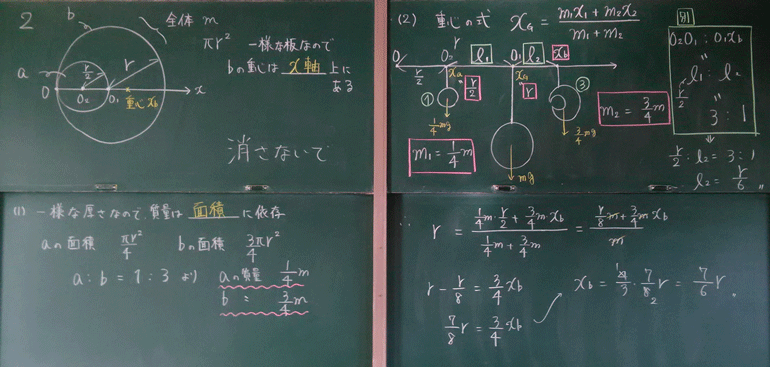 2
b
全体 m
πr²
一様な板なので
bの重心は x軸 上に
ある
a
r/2
r
O
O₂
O₁
重心 x_b
x
消さないで
(1) 一様な厚さなので、質量は 面積 に依存
aの面積 πr²/4  bの面積 3πr²/4
a : b = 1 : 3 より aの質量 1/4 m
b 〃 3/4 m
(2) 重心の式 x_G = (m₁x₁ + m₂x₂)/(m₁ + m₂)
O O₂ r l₁ O₁ l₂ x_b
r/2 x_a x_G
〃 r/2 〃 r
① ③
1/4 mg
3/4 mg
m₁ = 1/4 m
m₂ = 3/4 m
mg
別
O₂O₁ : O₁x_b
〃
l₁ : l₂
r/2 〃
3 : 1
r/2 : l₂ = 3 : 1
l₂ = r/6 〃
∴ r = (1/4 m・r/2 + 3/4 m・x_b)/(1/4 m + 3/4 m) = (r/8 m + 3/4 m x_b)/m
r - r/8 = 3/4 x_b
7/8 r = 3/4 x_b
x_b = 4/3・7/8 r = 7/6 r 。